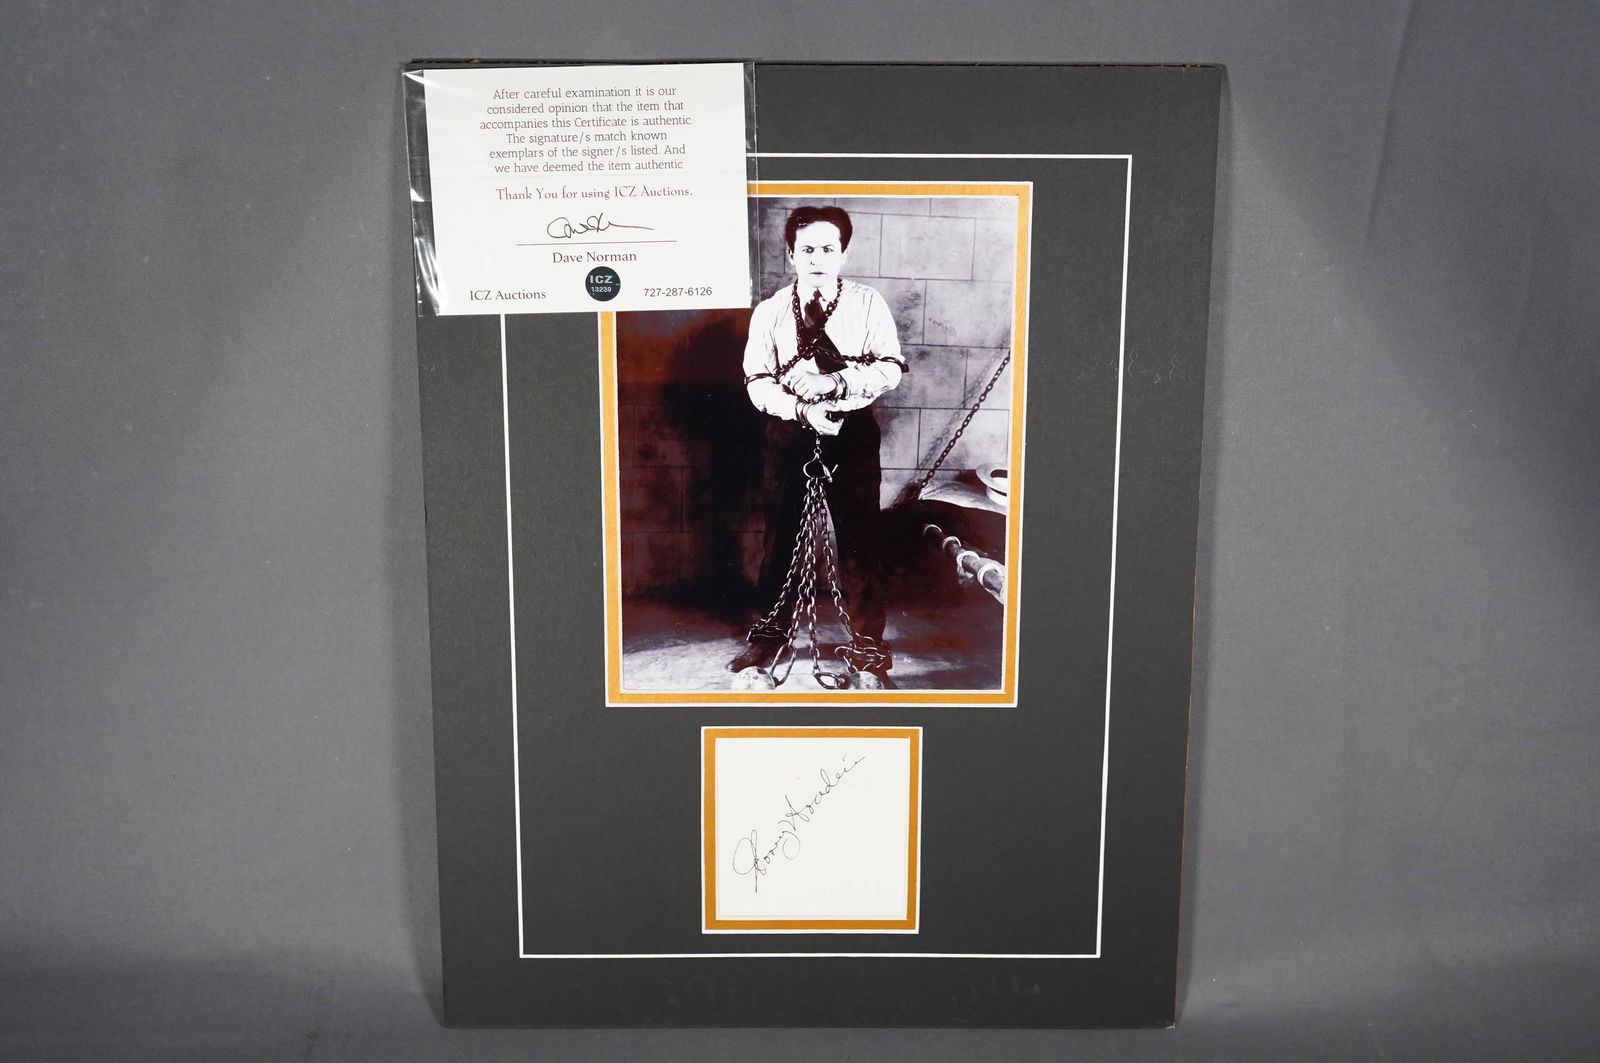 After careful examination it is our
considered opinion that the item that
accompanies this Certificate is authentic.
The signature/s match known
exemplars of the signer/s listed. And
we have deemed the item authentic
Thank You for using ICZ Auctions.
Dave Norman
ICZ Auctions
ICZ
13239
727-287-6126
Harry Houdini